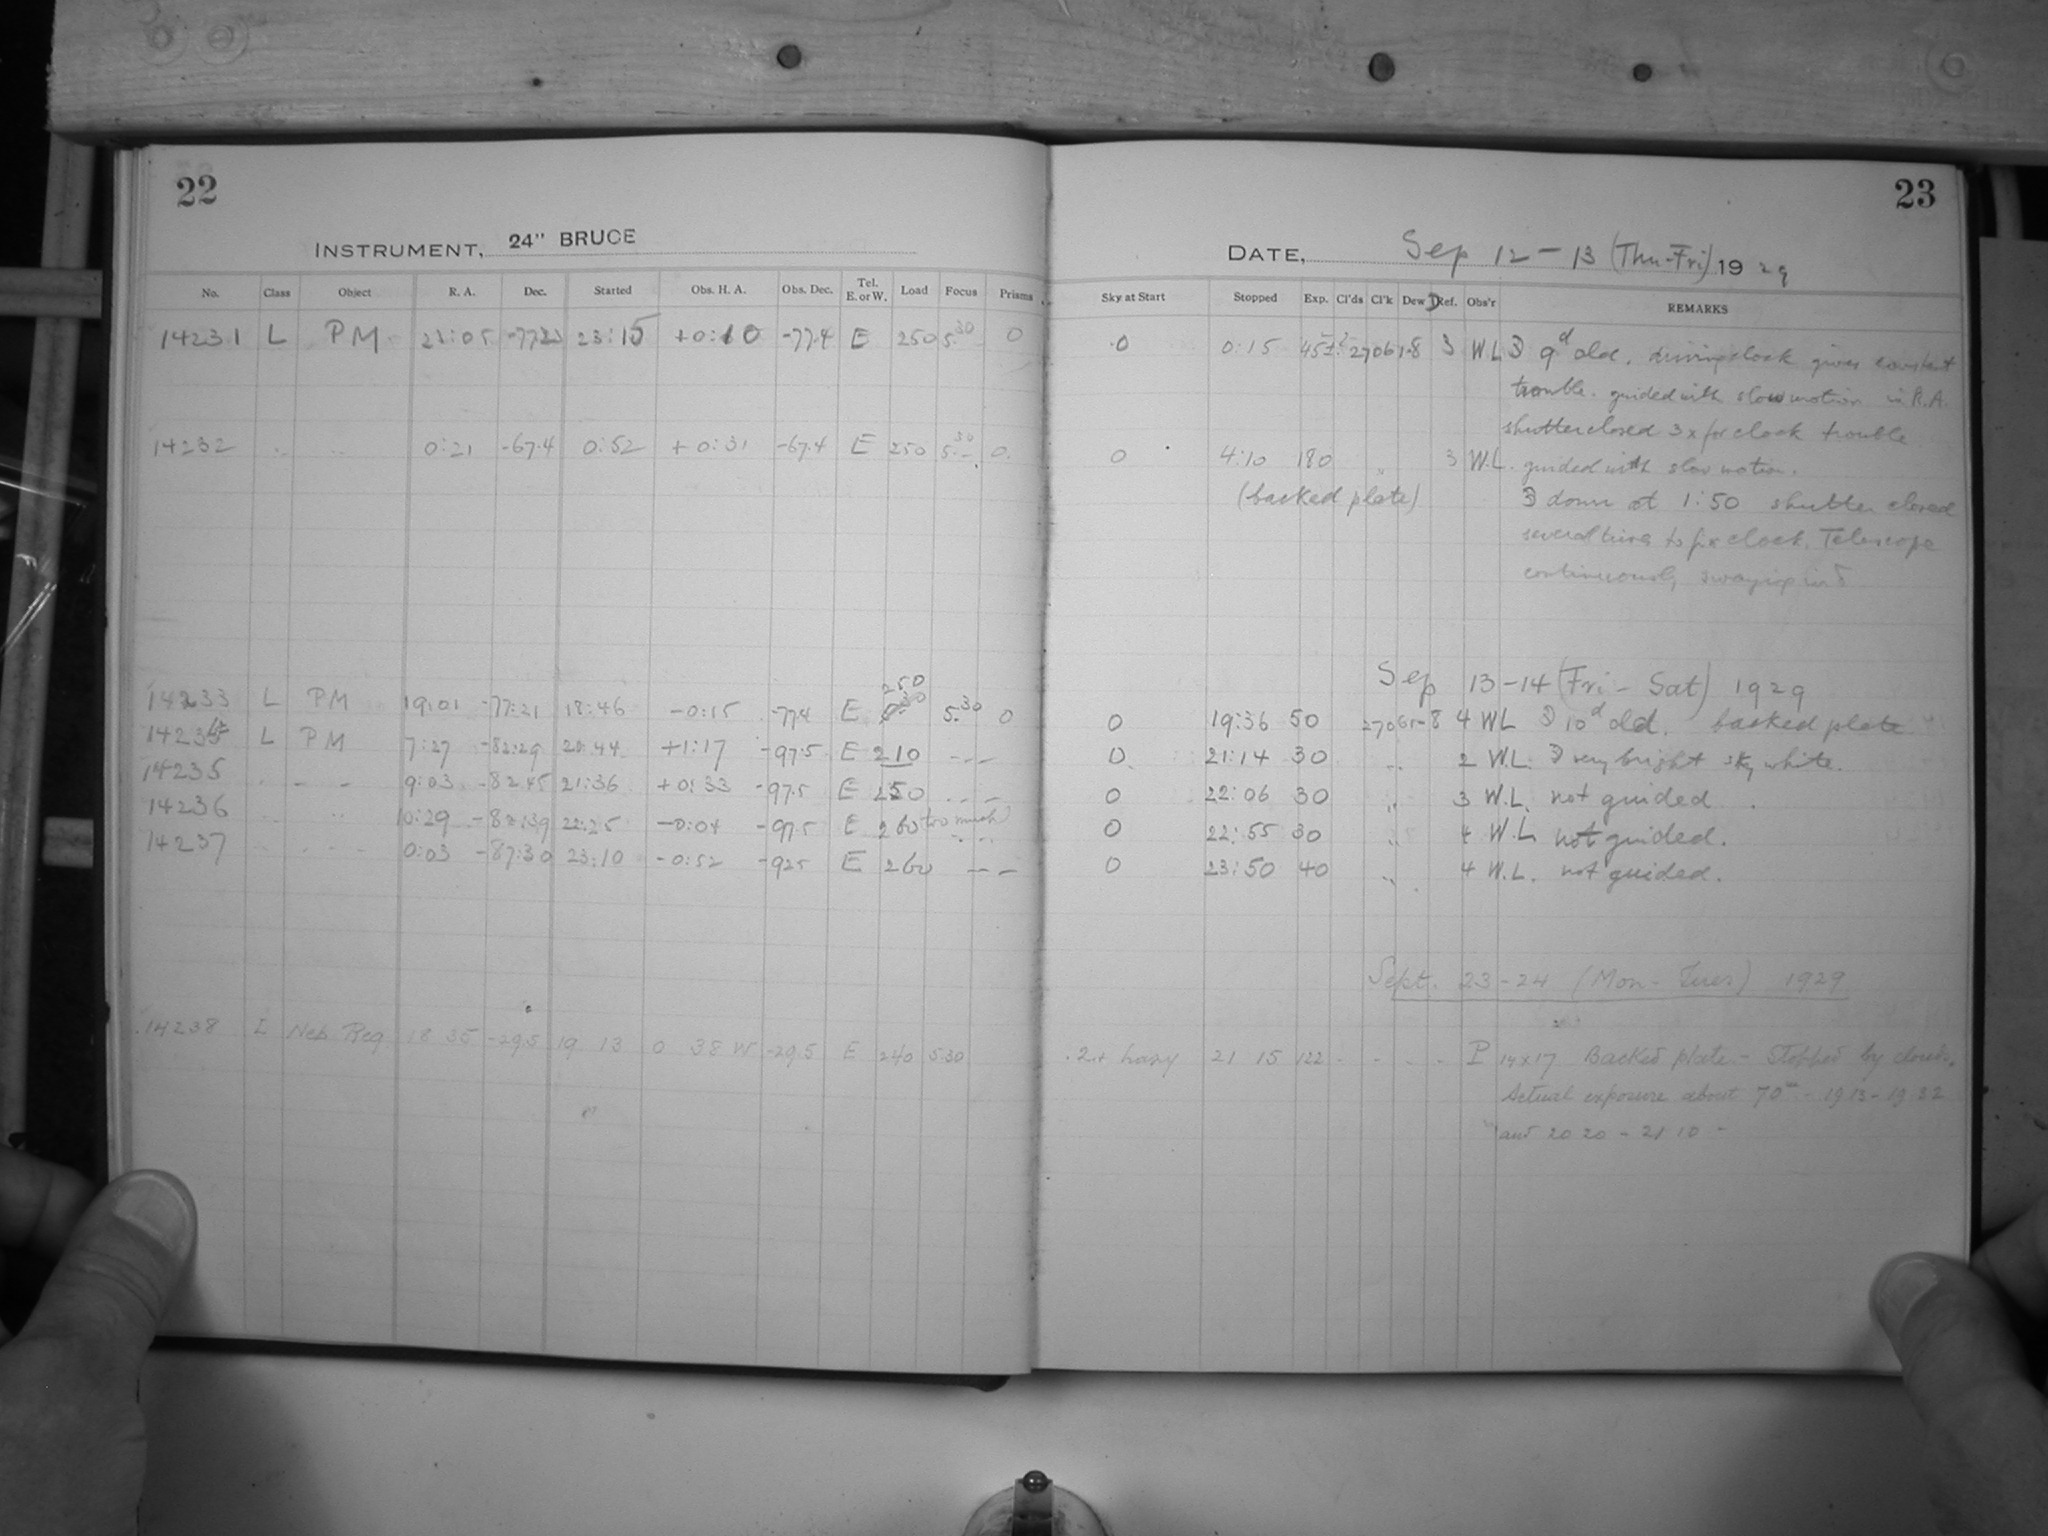 22
INSTRUMENT, 24" BRUCE
No. Class Object R. A. Dec. Started Obs. H. A. Obs. Dec. Tel. E. or W. Load Focus Prisms
14231 L PM 23:05 -77.23 23:15 +0:10 -77.4 E 250 5.30 0
14232 0:21 -67.4 0:52 +0:31 -67.4 E 250 5.30 0.
14233 L PM 19:01 -77:21 18:46 -0:15 -77.4 E 250 5.30 0
14234 L PM 7:27 -82:29 20:44 +1:17 -97.5 E 210
14235 9:03 -82.45 21:36 +0:33 -97.5 E 250
14236 10:29 -82:39 22:25 -0:04 -97.5 E 260 too much
14237 0:03 -87:30 23:10 -0:52 -92.5 E 260
14238 I Neb Reg 18 35 -29.5 19 13 0 38 W -29.5 E 240 5.30
23
DATE, Sep 12 - 13 (Thu-Fri) 1929
Sky at Start Stopped Exp. Cl'ds Cl'k Dew Ref. Obs'r REMARKS
0 0:15 45± 27061-8 3 WL 9d old. driving clock gives constant
trouble. guided with slow motion in R.A.
shutter closed 3x for clock trouble
0 4:10 180 " 3 W.L. guided with slow motion.
(backed plate) down at 1:50 shutter closed
several times to fix clock. Telescope
continuously swaying in δ
Sep 13-14 (Fri - Sat) 1929
0 19:36 50 27061-8 4 WL 10d old. backed plate
0 21:14 30 " 2 W.L. very bright sky white.
0 22:06 30 " 3 W.L. not guided.
0 22:55 30 " 4 W.L not guided.
0 23:50 40 " 4 W.L. not guided.
Sept. 23-24 (Mon-Tues) 1929
2+ hazy 21 15 122 - - - - P 14x17 Backed plate - Stopped by clouds.
Actual exposure about 70m - 19 13 - 19 32
and 20 20 - 21 10 -